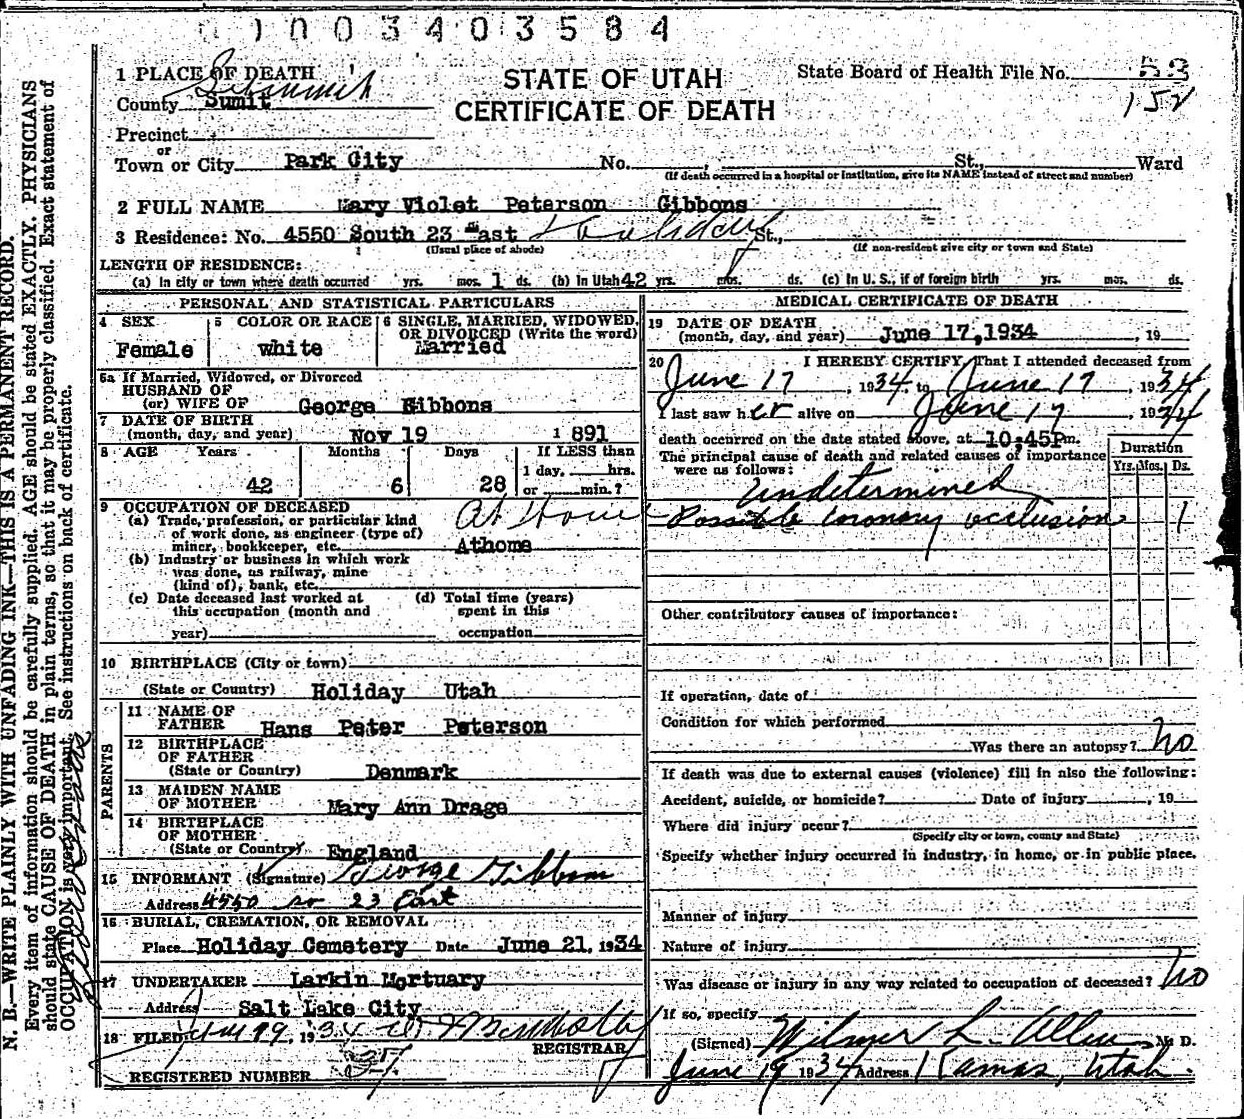 1003403584
1 PLACE OF DEATH
STATE OF UTAH
CERTIFICATE OF DEATH
State Board of Health File No. 53
152
County Sumit
Precinct
or
Town or City Park City No. , St., Ward
(If death occurred in a hospital or institution, give its NAME instead of street and number)
2 FULL NAME Mary Violet Peterson Gibbons
3 Residence: No. 4550 South 23 East Holiday St.,
(Usual place of abode) (If non-resident give city or town and State)
LENGTH OF RESIDENCE:
(a) In city or town where death occurred yrs. mos. 1 ds. (b) In Utah 42 yrs. mos. ds. (c) In U. S., if of foreign birth yrs. mos. ds.
PERSONAL AND STATISTICAL PARTICULARS
4 SEX
Female
5 COLOR OR RACE
white
6 SINGLE, MARRIED, WIDOWED,
OR DIVORCED (Write the word)
Married
6a If Married, Widowed, or Divorced
HUSBAND OF
(or) WIFE OF George Gibbons
7 DATE OF BIRTH
(month, day, and year) Nov 19 1891
8 AGE Years Months Days If LESS than
1 day, hrs.
42 6 28 or min.?
9 OCCUPATION OF DECEASED
(a) Trade, profession, or particular kind
of work done, as engineer (type of)
miner, bookkeeper, etc. Athome
At Home
(b) Industry or business in which work
was done, as railway, mine
(kind of), bank, etc.
(c) Date deceased last worked at
this occupation (month and
year)
(d) Total time (years)
spent in this
occupation
10 BIRTHPLACE (City or town)
(State or Country) Holiday Utah
PARENTS
11 NAME OF
FATHER Hans Peter Peterson
12 BIRTHPLACE
OF FATHER
(State or Country) Denmark
13 MAIDEN NAME
OF MOTHER Mary Ann Drage
14 BIRTHPLACE
OF MOTHER
(State or Country) England
15 INFORMANT (Signature) George Gibbons
Address 4550 so 23 East
16 BURIAL, CREMATION, OR REMOVAL
Place Holiday Cemetery Date June 21, 1934
17 UNDERTAKER Larkin Mortuary
Address Salt Lake City
18 FILED June 19, 1934
REGISTRAR
REGISTERED NUMBER 37
MEDICAL CERTIFICATE OF DEATH
19 DATE OF DEATH
(month, day, and year) June 17, 1934 , 19
20 I HEREBY CERTIFY, That I attended deceased from
June 17, 1934, to June 17, 1934
I last saw her alive on June 17, 1934
death occurred on the date stated above, at 10;45Pm.
The principal cause of death and related causes of importance
were as follows:
Duration
Yrs. Mos. Ds.
Undetermined
Possible coronary occlusion 1
Other contributory causes of importance:
If operation, date of
Condition for which performed
Was there an autopsy? no
If death was due to external causes (violence) fill in also the following:
Accident, suicide, or homicide? Date of injury , 19
Where did injury occur?
(Specify city or town, county and State)
Specify whether injury occurred in industry, in home, or in public place.
Manner of injury
Nature of injury
Was disease or injury in any way related to occupation of deceased? no
If so, specify
(Signed) Wilmer L. Allen M. D.
June 19 1934 Address Kamas, Utah.
N. B.—WRITE PLAINLY WITH UNFADING INK—THIS IS A PERMANENT RECORD.
Every item of information should be carefully supplied. AGE should be stated EXACTLY. PHYSICIANS
should state CAUSE OF DEATH in plain terms, so that it may be properly classified. Exact statement of
OCCUPATION is very important. See instructions on back of certificate.